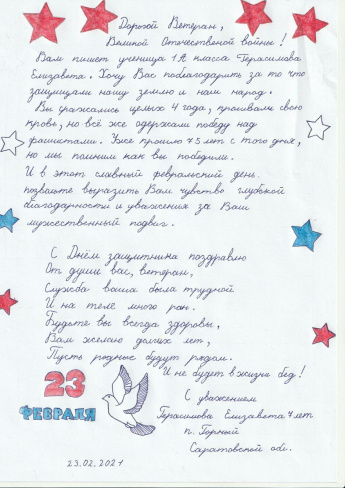 Дорогой Ветеран,
Великой Отечественной войны!
Вам пишет ученица 1А класса Герасимова
Елизавета. Хочу Вас поблагодарить за то что
защищали нашу землю и наш народ.
Вы сражались целых 4 года, проливали свою
кровь, но всё же одержали победу над
фашистами. Уже прошло 75 лет с того дня,
но мы помним как вы победили.
И в этот славный февральский день
позвольте выразить Вам чувство глубокой
благодарности и уважения за Ваш
мужественный подвиг.
С Днём защитника поздравлю
От души вас, ветеран,
Служба ваша была трудной
И на теле много ран.
Будьте вы всегда здоровы,
Вам желаю долгих лет,
Пусть родные будут рядом.
И не будет в жизни бед!
23
ФЕВРАЛЯ
С уважением
Герасимова Елизавета 7 лет
п. Горный
Саратовской обл.
23.02.2021